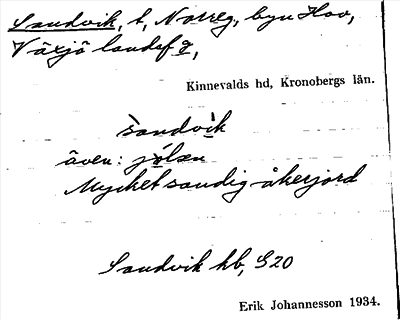 Sandvik, t, Norreg, byn Hov,
Växjö landsf g,
Kinnevalds hd, Kronobergs län.
sandvik
även: jölen
Mycket sandig åkerjord
Sandvik hb, G20
Erik Johannesson 1934.